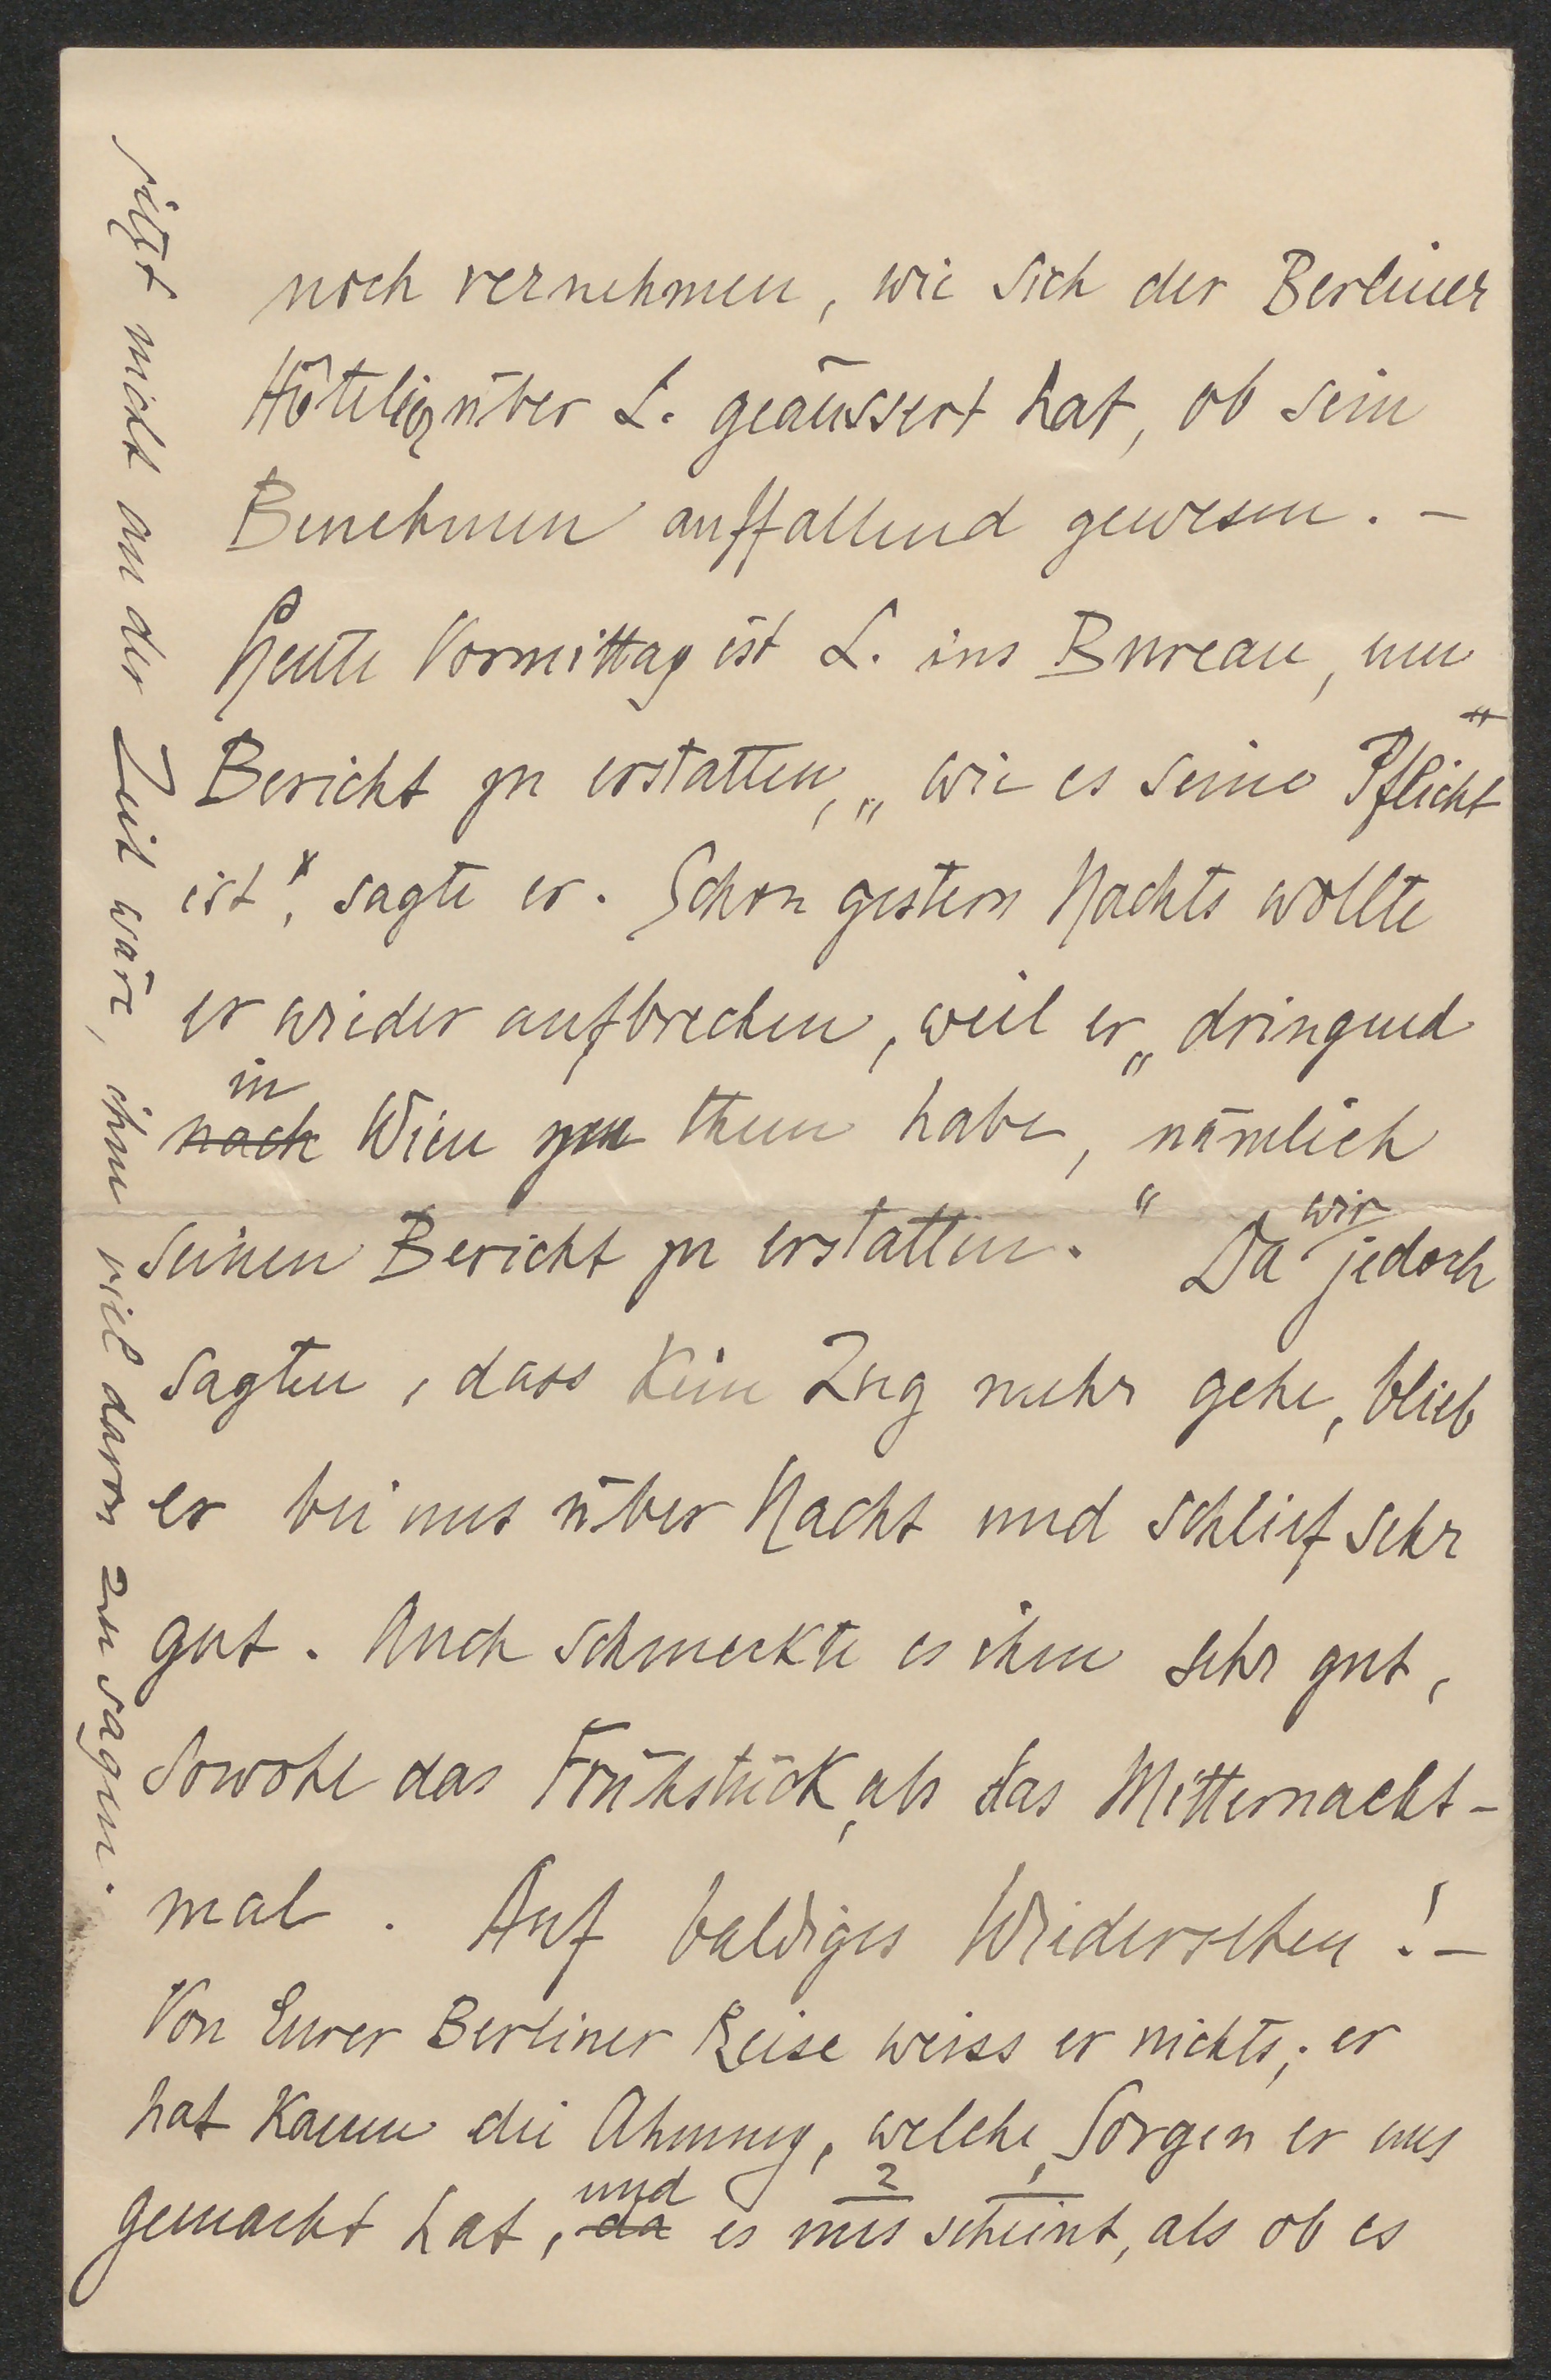 noch vernehmen, wie sich der Berliner
Hôtelier über L. geäussert hat, ob sein
Benehmen auffallend gewesen. –
Heute Vormittag ist L. ins Bureau, um
Bericht zu erstatten, „wie es seine Pflicht
ist“, sagte er. Schon gestern Nachts wollte
er wieder aufbrechen, weil er „dringend
in
nach Wien zu thun habe, nämlich
seinen Bericht zu erstatten.“ Da wir jedoch
sagten, dass kein Zug mehr gehe, blieb
er bei uns über Nacht und schlief sehr
gut. Auch schmeckte es ihm sehr gut,
sowohl das Frühstück, als das Mitternacht-
mal. Auf baldiges Wiedersehen! –
Von Eurer Berliner Reise weiss er nichts; er
hat kaum die Ahnung, welche Sorgen er uns
und 2 1
gemacht hat, da es uns scheint, als ob es
jetzt nicht an der Zeit wäre, ihm viel davon zu sagen.